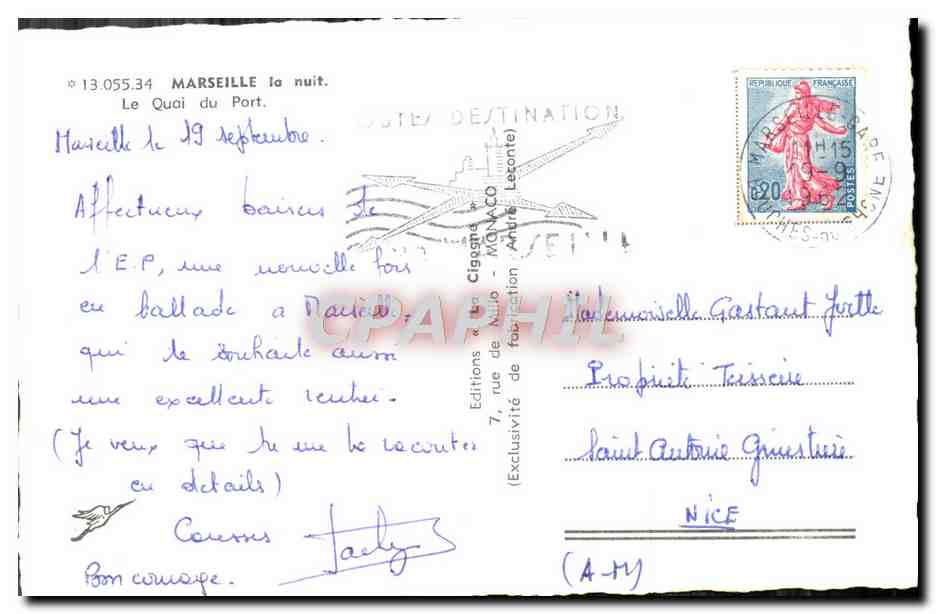 13.055.34 MARSEILLE la nuit.
Le Quai du Port.
Marseille le 19 septembre.
Affectueux baisers de
l'E.P, une nouvelle fois
en ballade a Marseille,
qui te souhaite aussi
une excellente rentrée.
(Je veux que tu me la racontes
en details)
Caresses
Bon courage.
TOUTES DESTINATION
MARSEILLE
Editions « La Cigogne »
7, rue de Millo - MONACO
(Exclusivité de fabrication André Leconte)
CPAPHIL
REPUBLIQUE FRANÇAISE
0,20
POSTES
MARSEILLE-GARE
11H15
19-9
BOUCHES-DU-RHONE
Mademoiselle Gastaut Yvette
Propriété Teisseire
Saint Antoine Ginestière
NICE
(A-M)